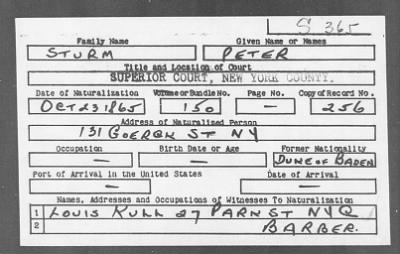 S 365
Family Name Given Name or Names
STURM PETER
Title and Location of Court
SUPERIOR COURT, NEW YORK COUNTY.
Date of Naturalization Volume or Bundle No. Page No. Copy of Record No.
OCT 23 1865 150 — 256
Address of Naturalized Person
131 GOERCK ST NY
Occupation Birth Date or Age Former Nationality
— — DUKE OF BADEN
Port of Arrival in the United States Date of Arrival
— —
Names, Addresses and Occupations of Witnesses To Naturalization
1 LOUIS KULL 27 ST NYC
2 BARBER.